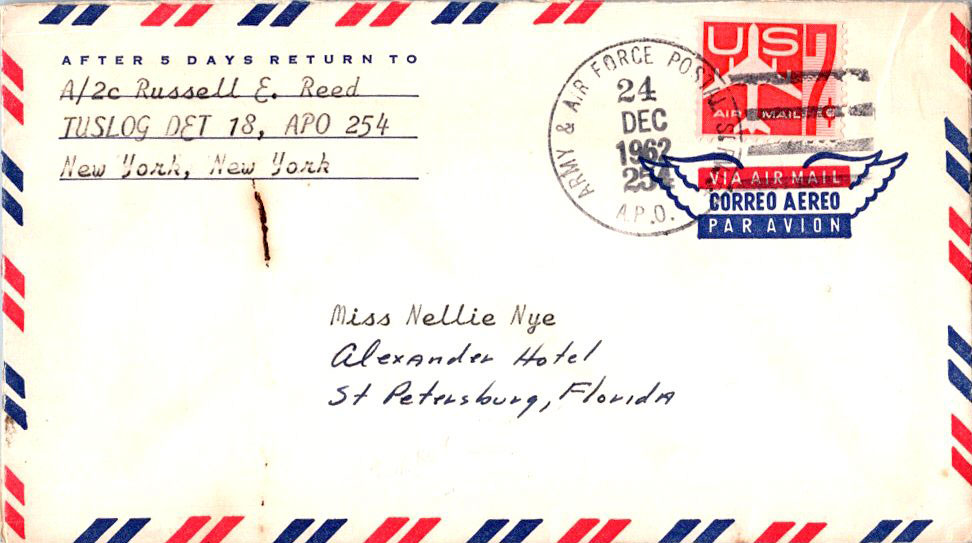 AFTER 5 DAYS RETURN TO
A/2c Russell E. Reed
TUSLOG DET 18, APO 254
New York, New York
ARMY & AIR FORCE POSTAL SERVICE
24
DEC
1962
254
A.P.O.
US 7
AIR MAIL ¢
VIA AIR MAIL
CORREO AEREO
PAR AVION
Miss Nellie Nye
Alexander Hotel
St Petersburg, Florida